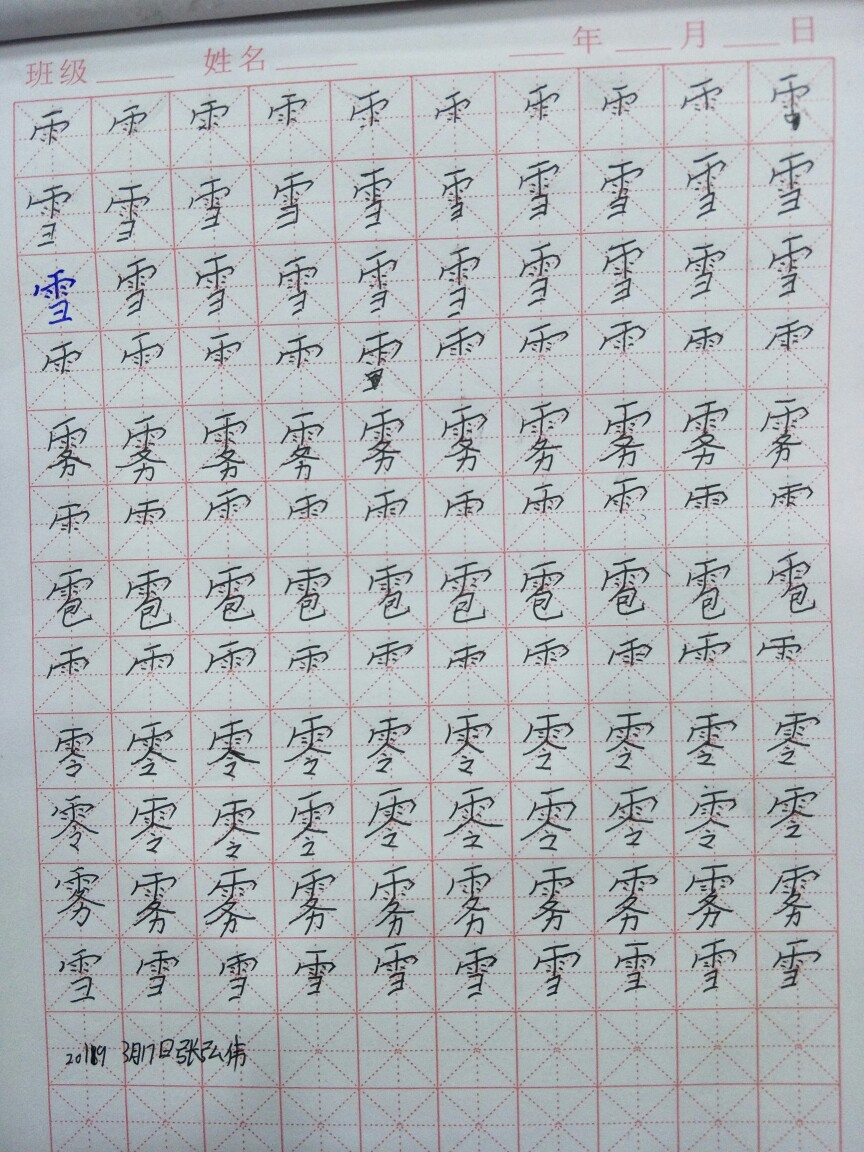 班级 姓名 年 月 日
雨 雨 雨 雨 雨 雨 雨 雨 雨 雨
雪 雪 雪 雪 雪 雪 雪 雪 雪 雪
雪 雪 雪 雪 雪 雪 雪 雪 雪 雪
雨 雨 雨 雨 雨 雨 雨 雨 雨 雨
雾 雾 雾 雾 雾 雾 雾 雾 雾 雾
雨 雨 雨 雨 雨 雨 雨 雨 雨 雨
雹 雹 雹 雹 雹 雹 雹 雹 雹 雹
雨 雨 雨 雨 雨 雨 雨 雨 雨 雨
零 零 零 零 零 零 零 零 零 零
零 零 零 零 零 零 零 零 零 零
雾 雾 雾 雾 雾 雾 雾 雾 雾 雾
雪 雪 雪 雪 雪 雪 雪 雪 雪 雪
2019 3月17日张弘伟